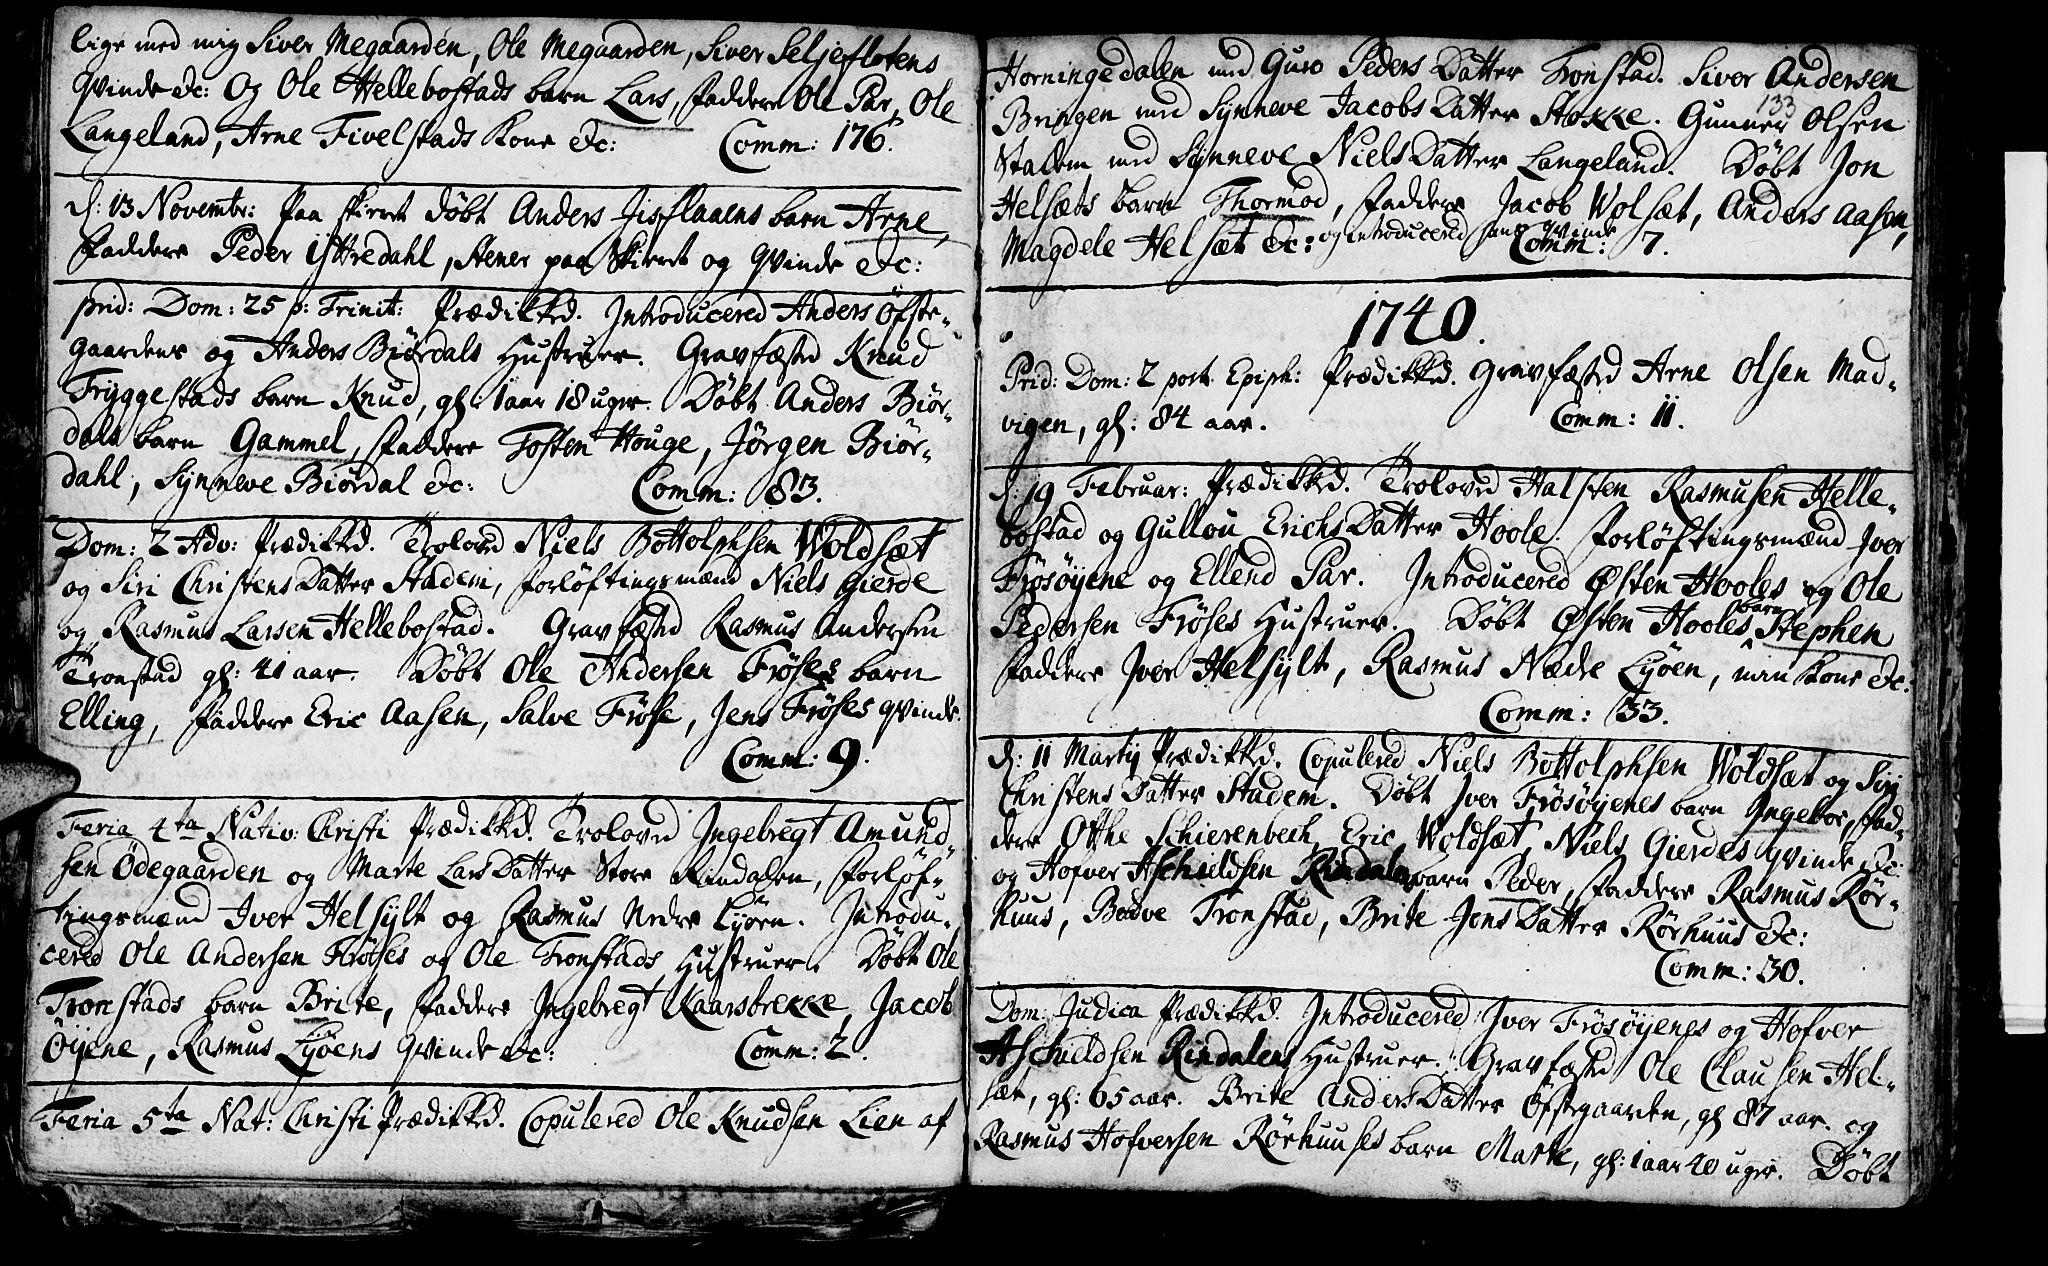 lige med mig Siver Megaarden, Ole Megaarden, Siver Seljeflotens
Qvinde &c: Og Ole Hellebostads barn Lars, Faddere Ole Par, Ole
Langeland, Arne Fivelstads Kone &c: Comm: 176.
d: 13 Novembr: Paa Skieret døbt Anders Jisflaaens barn Arne,
Faddere Peder Ittredahl, Stener paa Skieret og Qvinde &c:
prid: Dom: 25 p: Trinit: Prædikked. Introducered Anders Öfste-
gaardens og Anders Biørdals Hustruer. Gravfæsted Knud
Tryggestads barn Knud, gl: 1 aar 18 uger. Døbt Anders Biør-
dals barn Gammel, Faddere Tosten Houge, Jørgen Biør-
dahl, Synneve Biørdal &c: Comm: 83.
Dom: 2 Adv: Prædikked. Troloved Niels Bottolphsen Woldsæt
og Siri Christens Datter Stadem, Forløftingsmænd Niels Gierde
og Rasmus Larsen Hellebostad. Gravfæsted Rasmus Andersen
Tronstad gl: 41 aar. Døbt Ole Andersen Frøses barn
Elling, Faddere Eric Aasen, Salve Frøse, Jens Frøses qvinde.
Comm: 9.
Feria 4ta Nativ: Christi Prædikked. Troloved Ingebregt Amund-
sen Ödegaarden og Marte Lars Datter Store Rindalen, Forløf-
tingsmænd Iver Helsylt og Rasmus Nedre Liøen. Introdu-
cered Ole Andersen Frøses og Ole Tronstads Hustruer. Døbt Ole
Tronstads barn Brite, Faddere Ingebregt Kaarsbrekke, Jacob
Öijene, Rasmus Liøens qvinde &c: Comm: 2.
Feria 5ta Nat: Christi Prædikked. Copulered Ole Knudsen Lien af
Horningedalen med Guro Peders Datter Tronstad. Siver Andersen
133
Bringen med Synneve Jacobs Datter Stokke. Gunner Olsen
Stadem med Synneve Niels Datter Langeland. Døbt Jon
Helsæts barn Thormod, Faddere Jacob Wolsæt, Anders Aasen,
Magdele Helsæt &c: og introducered hans qvinde Comm: 7.
1740.
Prid: Dom: 2 post Epiph: Prædikked. Gravfæsted Arne Olsen Mad-
vigen, gl: 84 aar. Comm: 11.
d: 19 Februar: Prædikked. Troloved Halsten Rasmusen Helle-
bostad og Gullou Erichs Datter Hoole. Forløftingsmænd Iver
Frøsøijene og Ellend Par. Introducered Østen Hooles og Ole
Pedersen Frøses Hustruer. Døbt Østen Hooles barn Stephen
Faddere Iver Helsylt, Rasmus Nedre Liøen, min Kone &c.
Comm: 33.
d: 11 Martij Prædikked. Copulered Niels Bottolphsen Woldsæt og Sirj
Christens Datter Stadem. Døbt Iver Frøsøijenes barn Ingebor, Fad-
dere Otthe Schierenbech, Eric Woldsæt, Niels Gierdes qvinde &c:
og Hofver Aschieldsen Rindalens barn Peder, Faddere Rasmus Rør-
huus, Bodve Tronstad, Brite Jens Datter Rørhuus &c:
Comm: 30.
Dom: Judica Prædikked. Introducered Iver Frøsøijenes og Hofver
Aschieldsen Rindalens Hustruer. Gravfæsted Ole Clausen Hel-
sæt, gl: 65 aar. Brite Anders Datter Öfstegaarden, gl 87 aar. og
Rasmus Hofversen Rørhuuses barn Marte, gl: 1 aar 40 uger. Døbt